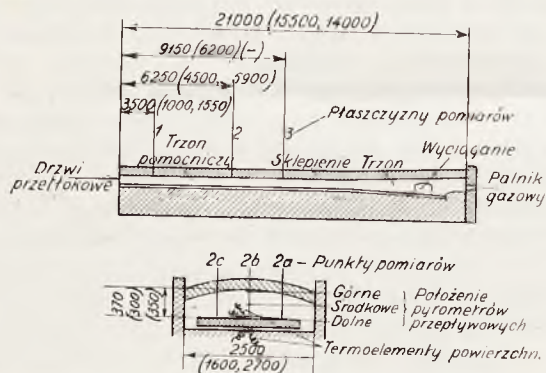 21000 (15500, 14000)
9150 (6200) (-)
6250 (4500, 5900)
3500 (1000, 1550)
1
2
3
Płaszczyzny pomiarów
Trzon
pomocniczy
Sklepienie
Trzon
Wyciąganie
Drzwi
przetłokowe
Palnik
gazowy
2c 2b 2a - Punkty pomiarów
370
(300)
(350)
Górne
Środkowe
Dolne
Położenie
pyrometrów
przepływowych
Termoelementy powierzchn.
2500
(1600, 2700)